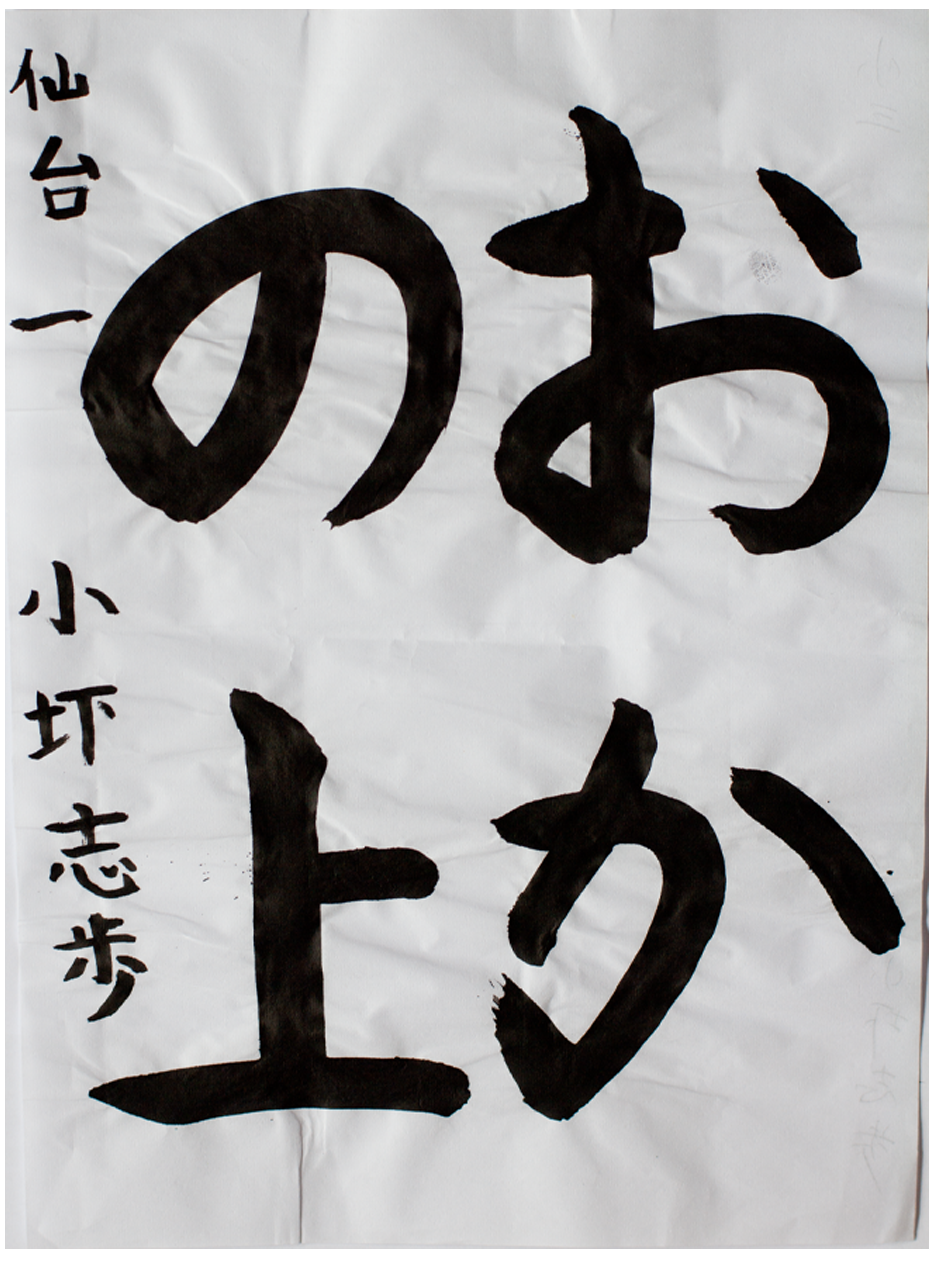 おか
の上
仙台一 小坏志歩